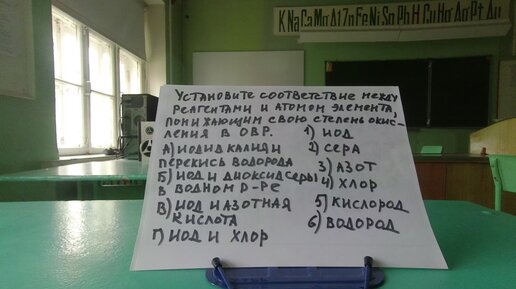 K Na Ca Mg Al Zn Fe Ni Sn Pb H Cu Hg Ag Pt Au
Установите соответствие между
реагентами и атомом элемента,
понижающим свою степень окис-
ления в ОВР.
А) иодид калия и
перекись водорода
Б) иод и диоксид серы
в водном р-ре
В) иод и азотная
кислота
Г) иод и хлор
1) иод
2) сера
3) азот
4) хлор
5) кислород
6) водород